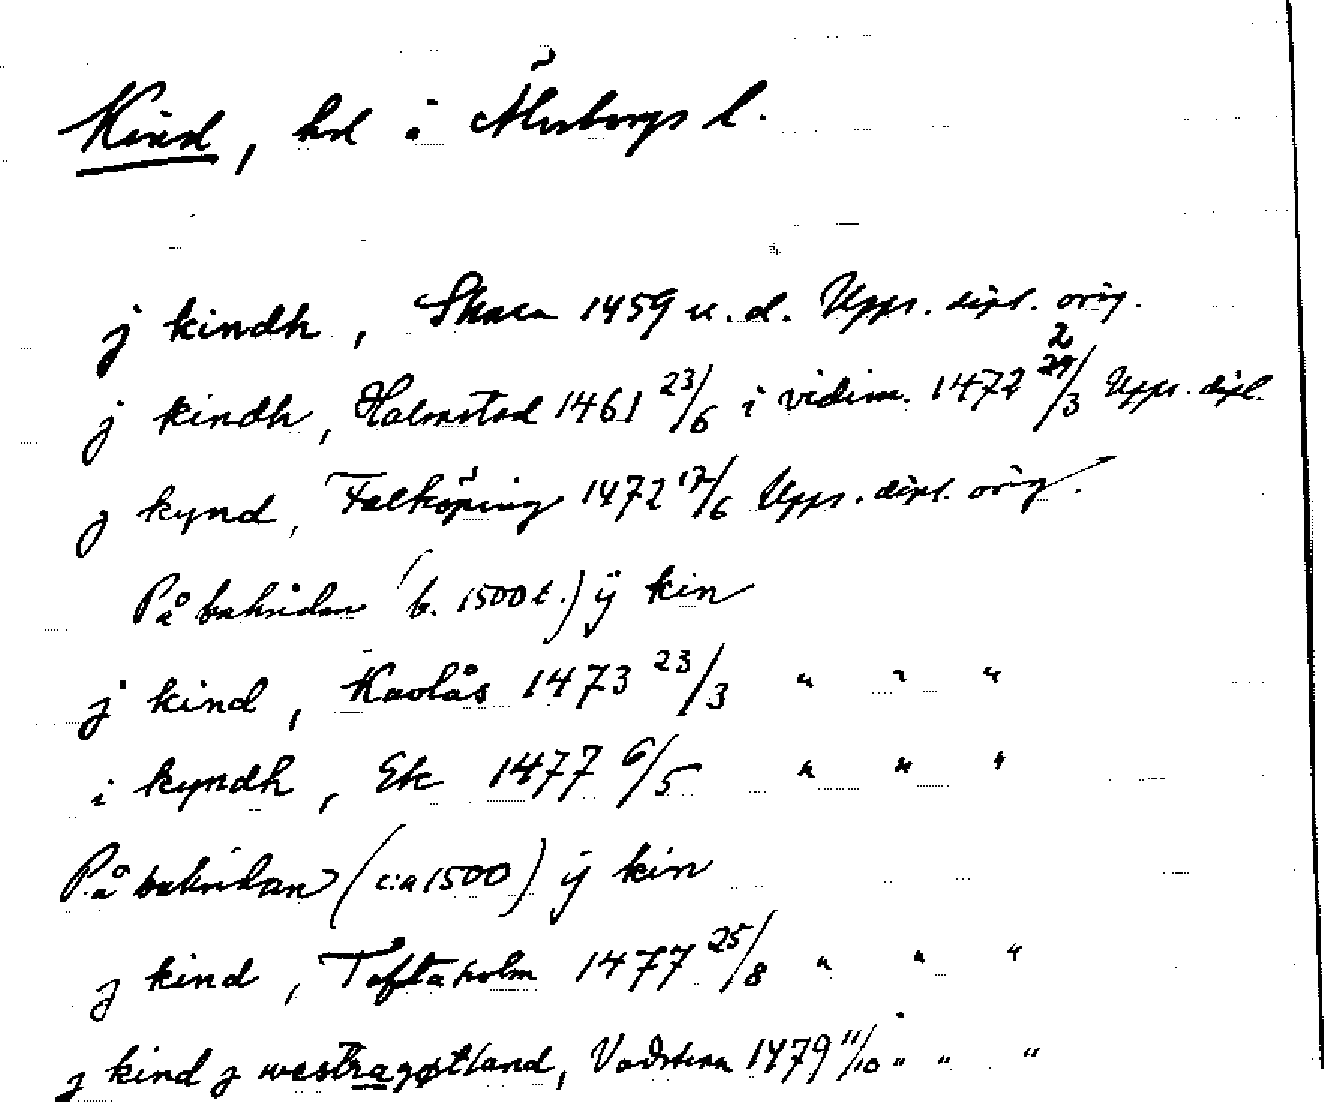 Kind, hd i Älvsborgs l.
j kindh, Skara 1459 u. d. Upps. dipl. orig.
j kindh, Halmstad 1461 23/6 i vidim. 1472 2/3 Upps. dipl.
j kynd, Falköping 1472 17/6 Upps. dipl. orig.
På baksidan (b. 1500 t.) ÿ kin
j kind, Kaolås 1473 23/3 " " "
i kyndh, Ek 1477 6/5 " " "
På baksidan (c:a 1500) ÿ kin
j kind, Toftaholm 1477 25/8 " " "
j kind j westragøtland, Vadstena 1479 11/10 " " "